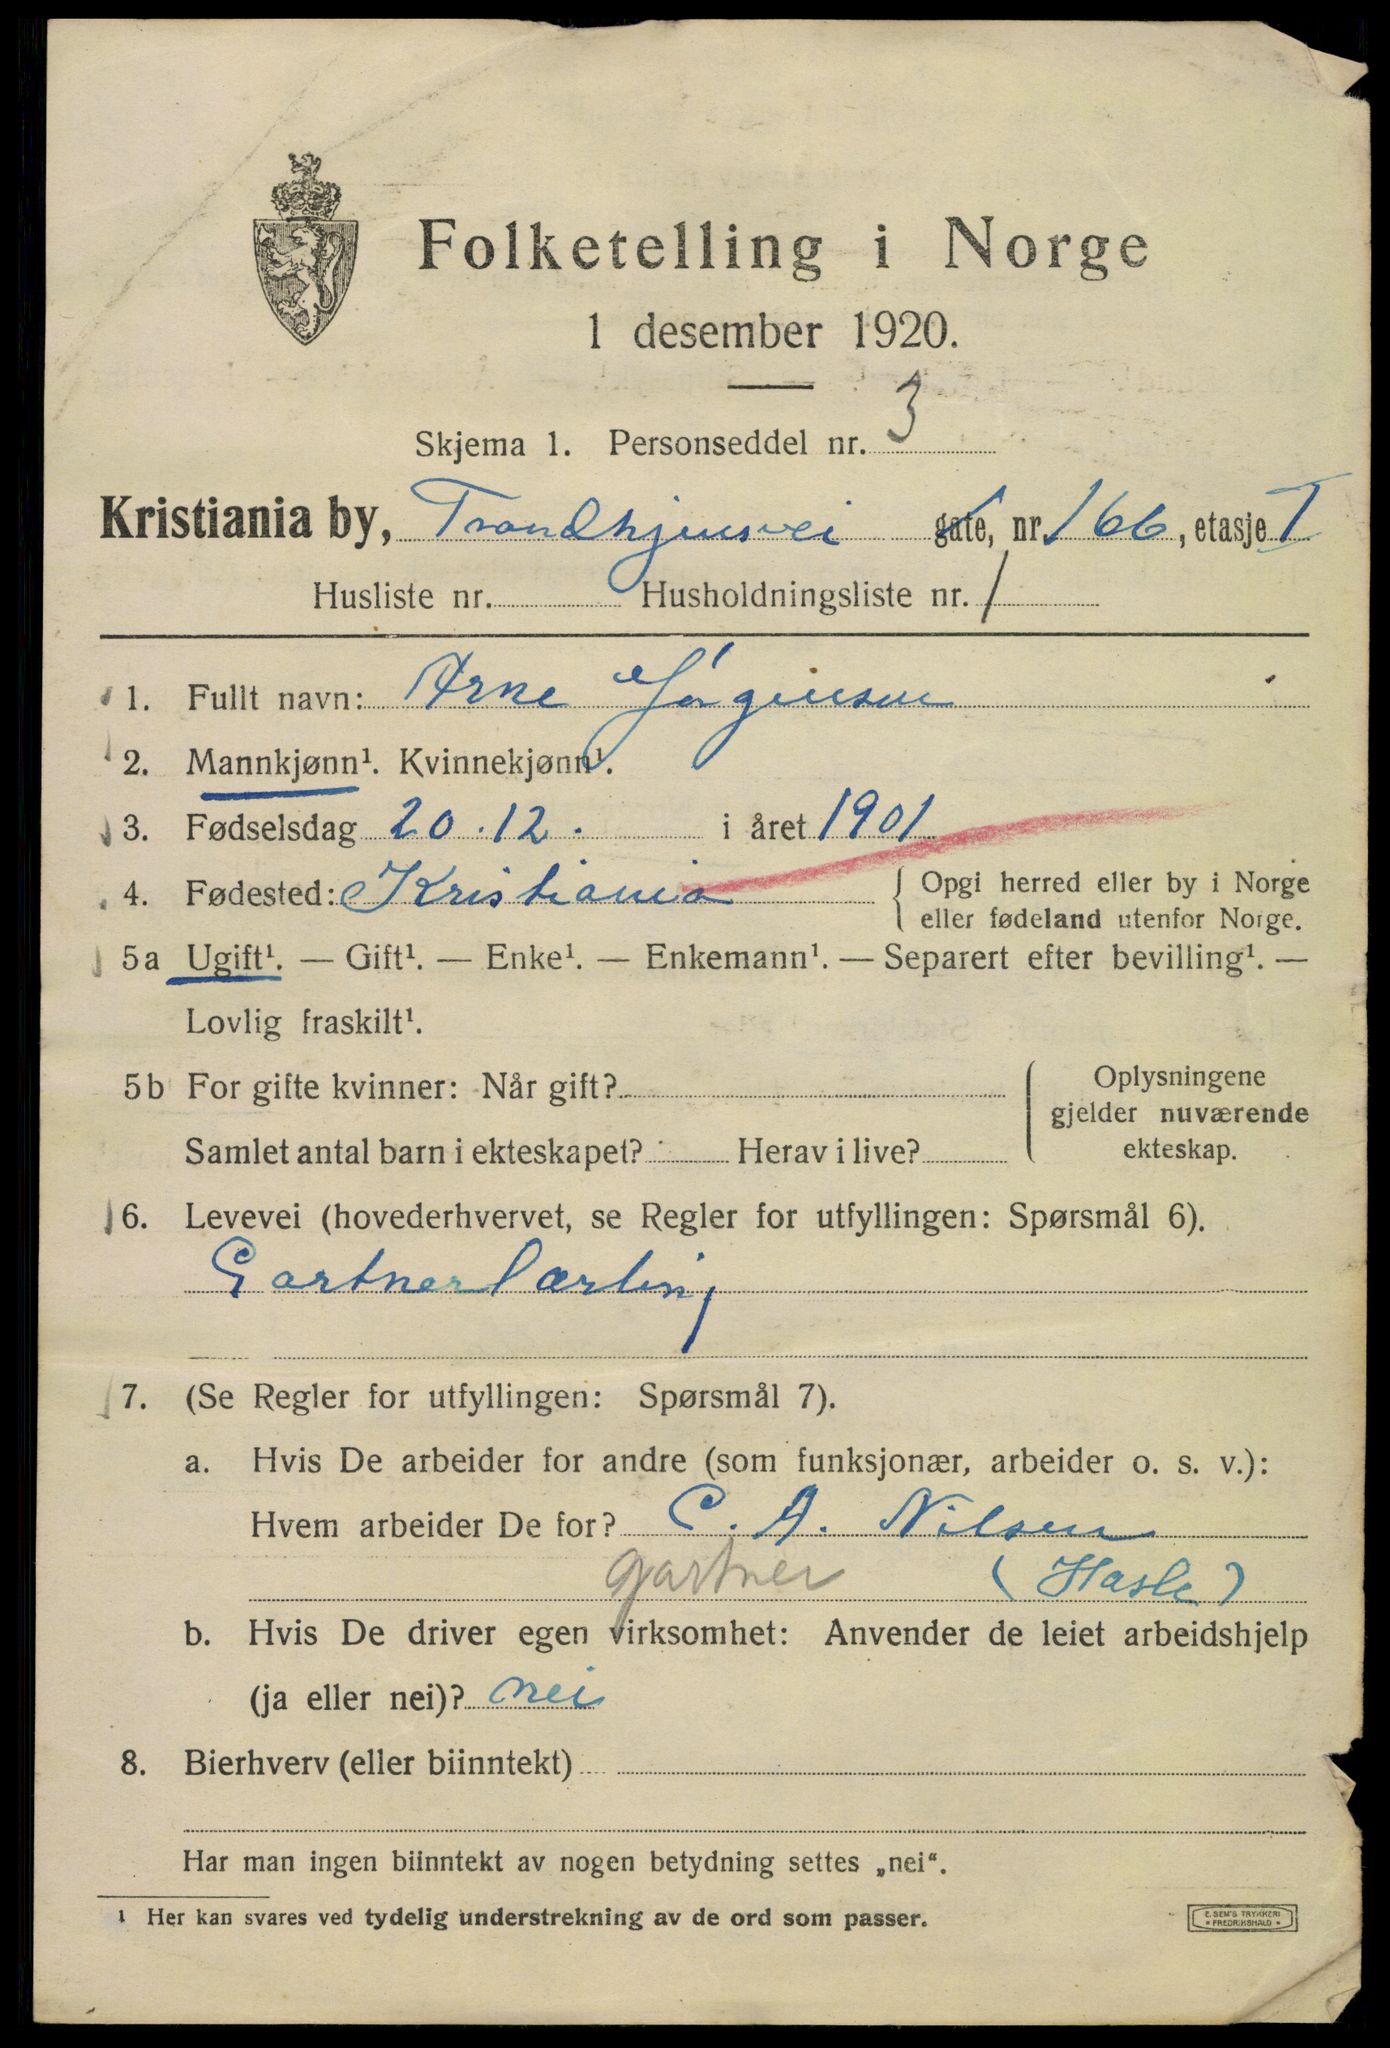 Folketelling i Norge
1 desember 1920.
Skjema 1. Personseddel nr. 3
Kristiania by, Trondhjemsvei gate, nr. 166, etasje I
Husliste nr. Husholdningsliste nr. 1
1. Fullt navn: Arne Jörgensen
2. Mannkjønn¹. Kvinnekjønn¹.
3. Fødselsdag 20.12. i året 1901
4. Fødested: Kristiania { Opgi herred eller by i Norge
eller fødeland utenfor Norge.
5a Ugift¹. — Gift¹. — Enke¹. — Enkemann¹. — Separert efter bevilling¹. —
Lovlig fraskilt¹.
5b For gifte kvinner: Når gift? Oplysningene
gjelder nuværende
Samlet antal barn i ekteskapet? Herav i live? ekteskap.
6. Levevei (hovederhvervet, se Regler for utfyllingen: Spørsmål 6).
Gartnerlærling
7. (Se Regler for utfyllingen: Spørsmål 7).
a. Hvis De arbeider for andre (som funksjonær, arbeider o. s. v.):
Hvem arbeider De for? C. A. Nilsen
gartner (Hasle)
b. Hvis De driver egen virksomhet: Anvender de leiet arbeidshjelp
(ja eller nei)? nei
8. Bierhverv (eller biinntekt)
Har man ingen biinntekt av nogen betydning settes „nei“.
1 Her kan svares ved tydelig understrekning av de ord som passer.
E. SEM'S TRYKKERI
• FREDRIKSHALD •